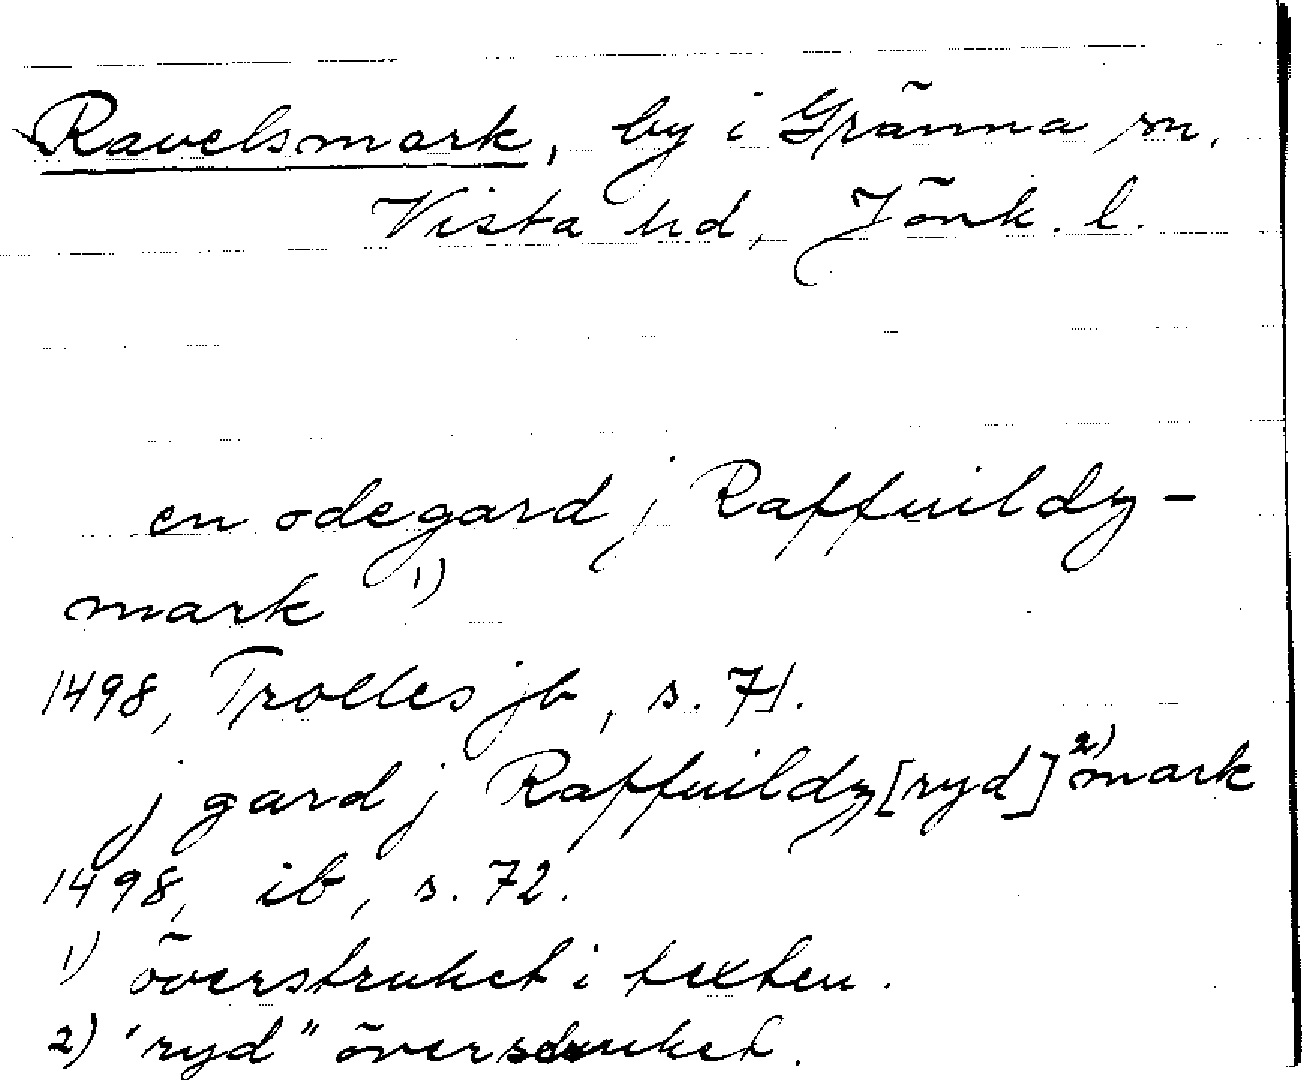 Ravelsmark, by i Gränna sn,
Vista hd, Jönk. l.
en odegard j Raffuildz-
mark 1)
1498, Trolles jb, s. 71.
j gard j Raffuildz[ryd]2)mark
1498, ib, s. 72.
1) överstruket i texten.
2) "ryd" överstruket.